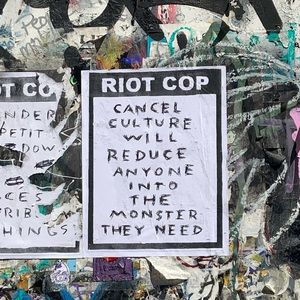 RIOT COP
CANCEL
CULTURE
WILL
REDUCE
ANYONE
INTO
THE
MONSTER
THEY NEED
OT CO
NDER
PETIT
DOW
CES
TRIB
HINGS